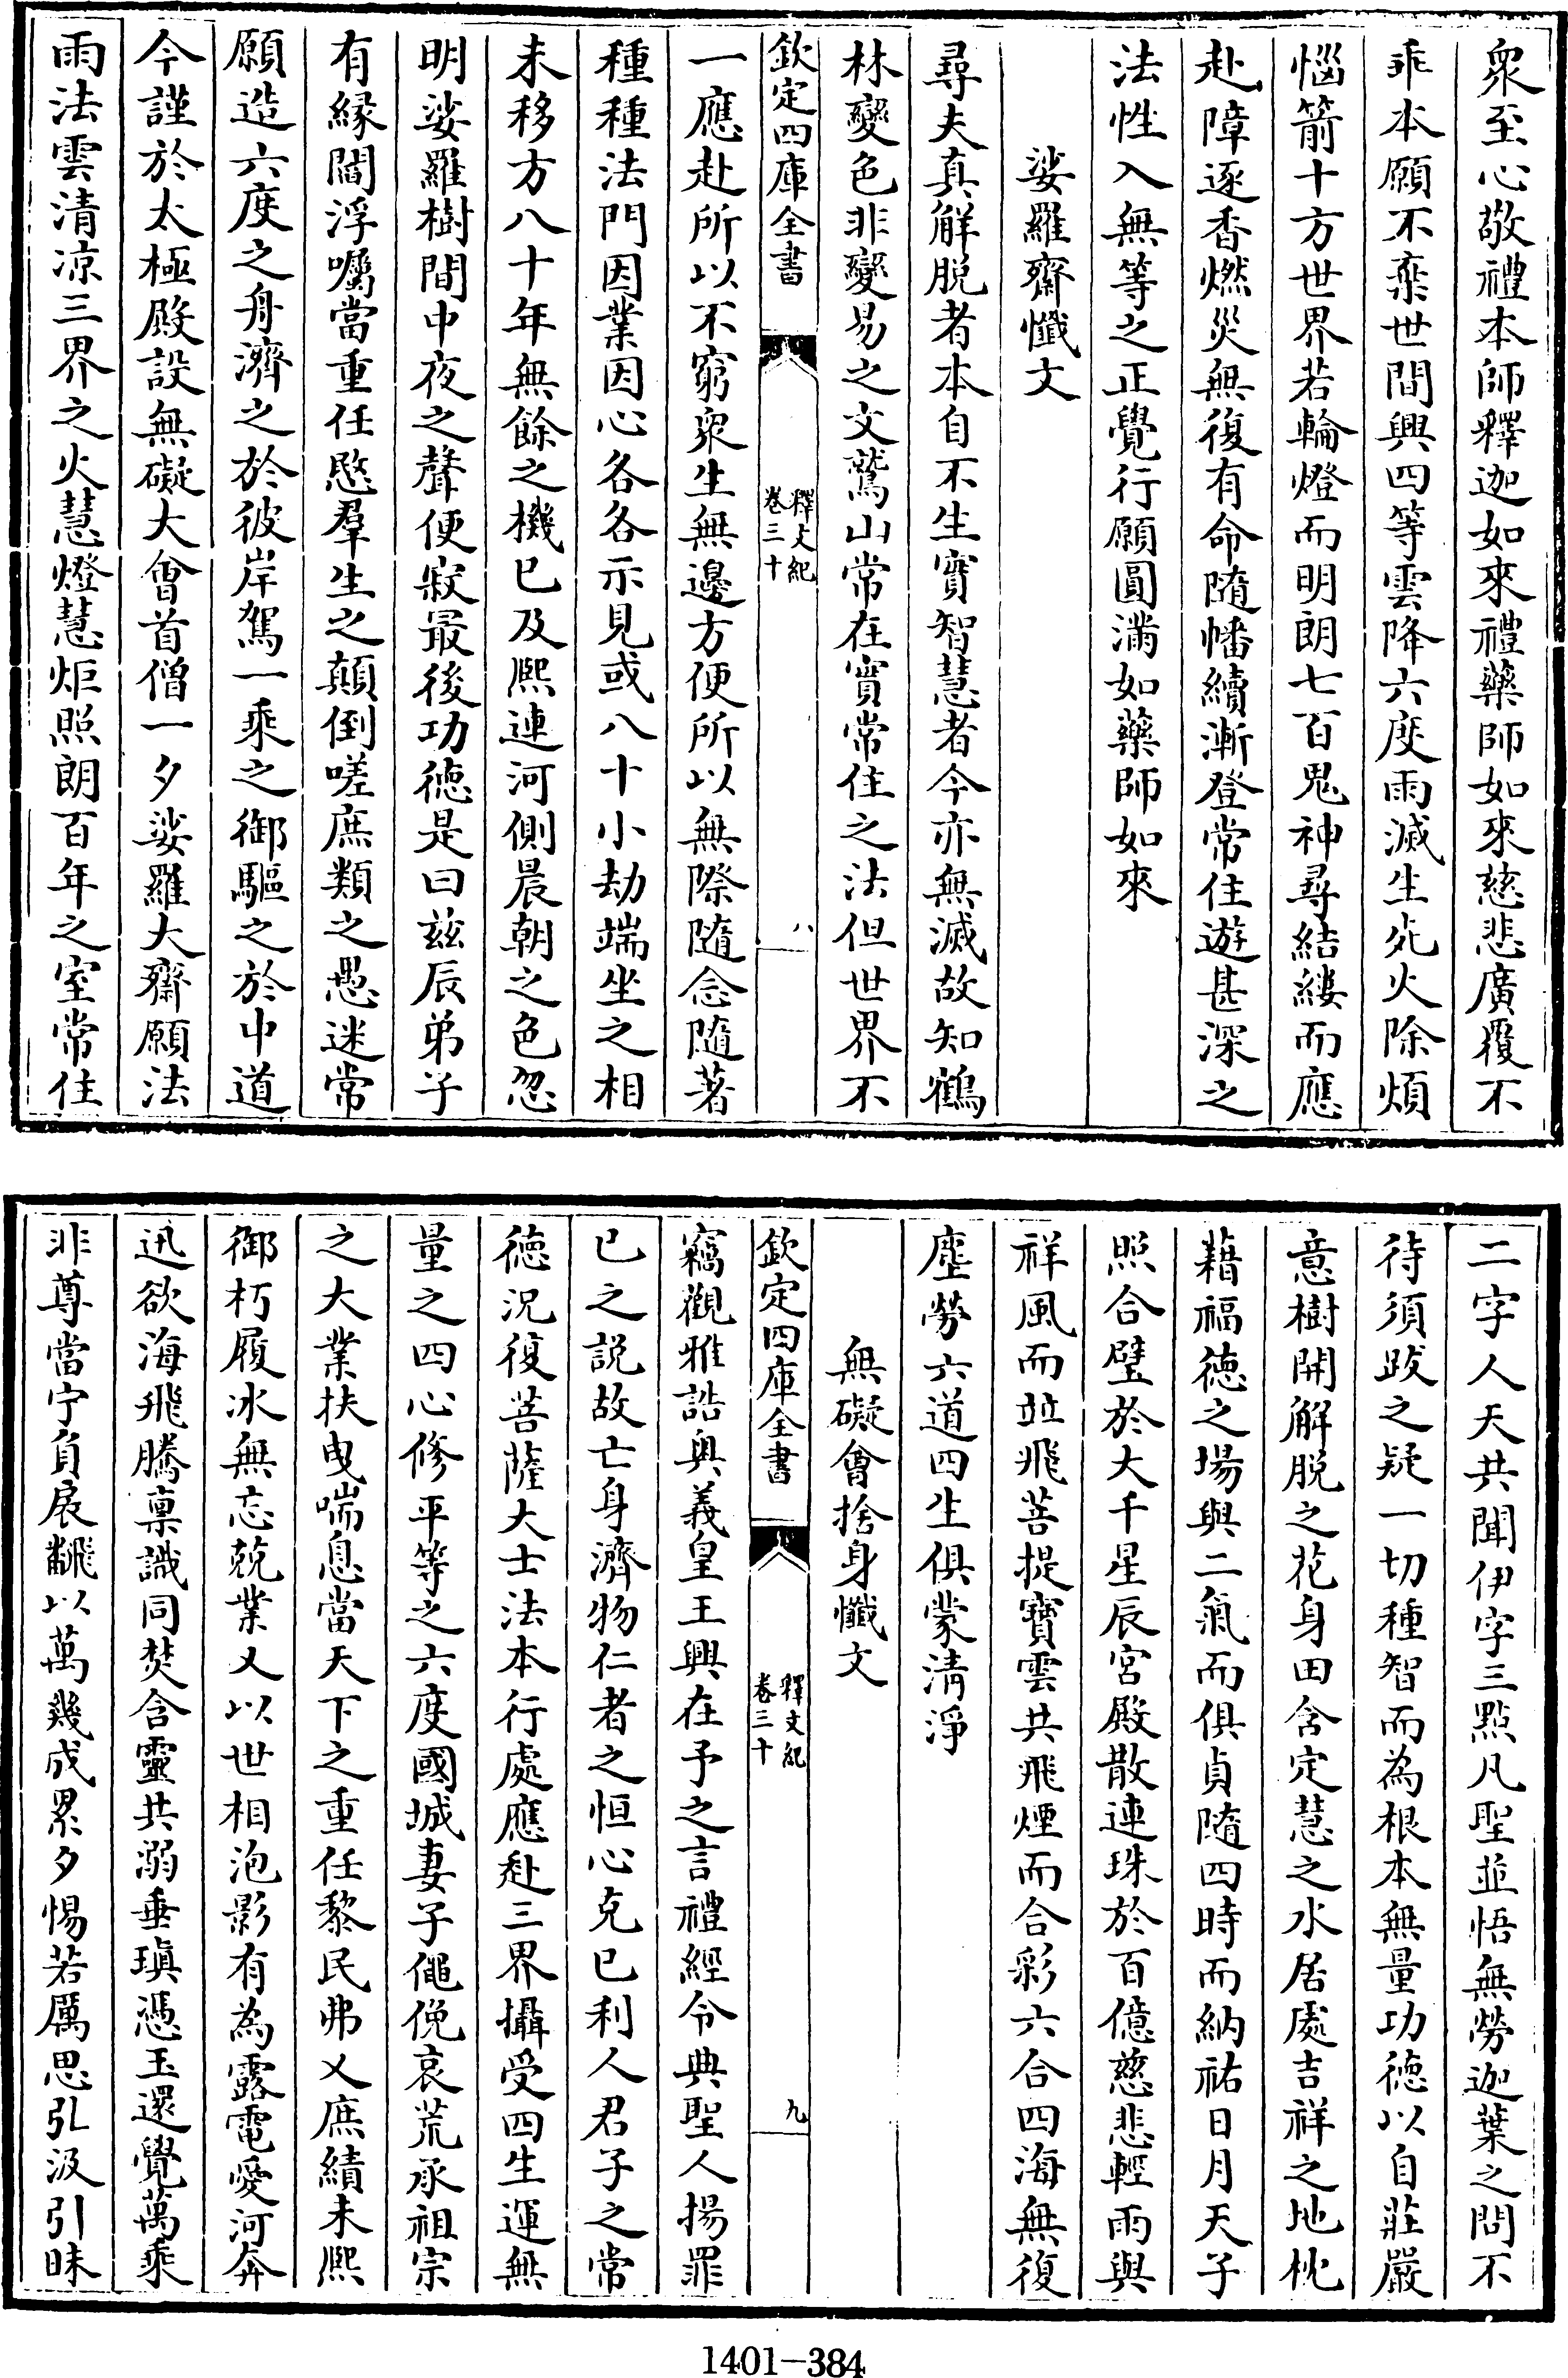 衆至心敬禮本師釋迦如來禮藥師如來慈悲廣覆不
乖本願不棄世間興四等雲降六度雨滅生死火除煩
惱箭十方世界若輪燈而明朗七百鬼神尋結縷而應
赴障逐香燃災無復有命隨幡續漸登常住遊甚深之
法性入無等之正覺行願圓滿如藥師如來
娑羅齋懺文
尋夫真解脱者本自不生實智慧者今亦無滅故知鶴
林變色非變易之文鷲山常在實常住之法但世界不
欽定四庫全書
釋文紀
卷三十
八
一應赴所以不窮衆生無邊方便所以無際隨念隨著
種種法門因業因心各各示見或八十小劫端坐之相
未移方八十年無餘之機已及熙連河側晨朝之色忽
明娑羅樹間中夜之聲便寂最後功徳是曰兹辰弟子
有緣閻浮囑當重任愍羣生之顛倒嗟庶類之愚迷常
願造六度之舟濟之於彼岸駕一乘之御驅之於中道
今謹於太極殿設無礙大會首僧一夕娑羅大齋願法
雨法雲清凉三界之火慧燈慧炬照朗百年之室常住
二字人天共聞伊字三點凡聖並悟無勞迦葉之問不
待須跋之疑一切種智而為根本無量功徳以自莊嚴
意樹開解脱之花身田含定慧之水居處吉祥之地枕
藉福徳之場與二氣而俱貞隨四時而納祐日月天子
照合璧於大千星辰宮殿散連珠於百億慈悲輕雨與
祥風而並飛菩提寶雲共飛煙而合彩六合四海無復
塵勞六道四生俱蒙清淨
無礙會捨身懺文
欽定四庫全書
釋文紀
卷三十
九
竊觀雅誥奥義皇王興在予之言禮經令典聖人揚罪
已之説故亡身濟物仁者之恒心克已利人君子之常
徳況復菩薩大士法本行處應赴三界攝受四生運無
量之四心修平等之六度國城妻子僶俛哀荒承祖宗
之大業扶曳喘息當天下之重任黎民弗乂庶績未熙
御朽履冰無忘兢業又以世相泡影有為露電愛河奔
迅欲海飛騰稟識同焚含靈共溺垂瑱憑玉還覺萬乘
非尊當宁負扆飜以萬幾成累夕惕若厲思弘汲引昧
1401-384